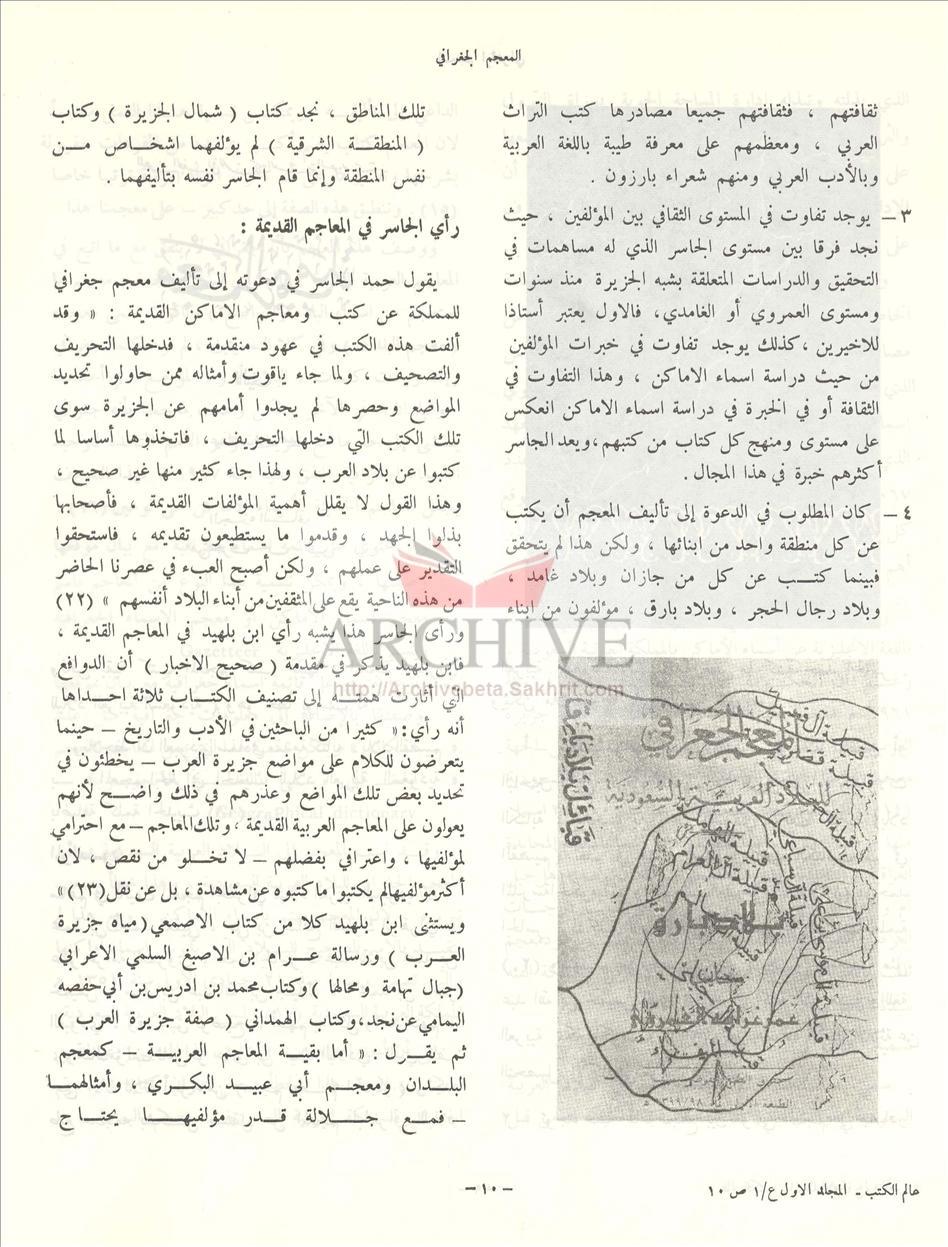 المعجم الجغرافي
ثقافتهم ، فثقافتهم جميعا مصادرها كتب التراث
العربي ، ومعظمهم على معرفة طيبة باللغة العربية
وبالأدب العربي ومنهم شعراء بارزون .
٣ – يوجد تفاوت في المستوى الثقافي بين المؤلفين ، حيث
نجد فرقا بين مستوى الجاسر الذي له مساهمات في
التحقيق والدراسات المتعلقة بشبه الجزيرة منذ سنوات
ومستوى العمروي أو الغامدي، فالاول يعتبر أستاذا
للاخيرين ،كذلك يوجد تفاوت في خبرات المؤلفين
من حيث دراسة اسماء الاماكن ، وهذا التفاوت في
الثقافة أو في الخبرة في دراسة اسماء الاماكن انعكس
على مستوى ومنهج كل كتاب من كتبهم،ويعد الجاسر
أكثرهم خبرة في هذا المجال.
٤ – كان المطلوب في الدعوة إلى تأليف المعجم أن يكتب
عن كل منطقة واحد من ابنائها ، ولكن هذا لم يتحقق
فبينما كتب عن كل من جازان وبلاد غامد ،
وبلاد رجال الحجر ، وبلاد بارق ، مؤلفون من ابناء
المعجم الجغرافي
للبلاد العربية السعودية
بلاد بارق
عمر غرامة العمروي
قبائل بلاد بارق
تلك المناطق ، نجد كتاب ( شمال الجزيرة ) وكتاب
( المنطقة الشرقية ) لم يؤلفهما اشخاص من
نفس المنطقة وإنما قام الجاسر نفسه بتأليفهما .
رأي الجاسر في المعاجم القديمة :
يقول حمد الجاسر في دعوته إلى تأليف معجم جغرافي
للمملكة عن كتب ومعاجم الاماكن القديمة : « وقد
ألفت هذه الكتب في عهود متقدمة ، فدخلها التحريف
والتصحيف ، ولما جاء ياقوت وأمثاله ممن حاولوا تحديد
المواضع وحصرها لم يجدوا أمامهم عن الجزيرة سوى
تلك الكتب التي دخلها التحريف ، فاتخذوها أساسا لما
كتبوا عن بلاد العرب ، ولهذا جاء كثير منها غير صحيح ،
وهذا القول لا يقلل أهمية المؤلفات القديمة ، فأصحابها
بذلوا الجهد ، وقدموا ما يستطيعون تقديمه ، فاستحقوا
التقدير على عملهم ، ولكن أصبح العبء في عصرنا الحاضر
من هذه الناحية يقع على المثقفين من أبناء البلاد أنفسهم » (٢٢)
ورأى الجاسر هذا يشبه رأي ابن بلهيد في المعاجم القديمة ،
فابن بلهيد يذكر في مقدمة ( صحيح الاخبار ) أن الدوافع
التي أثارت همته إلى تصنيف الكتاب ثلاثة احداها
أنه رأي: « كثيرا من الباحثين في الأدب والتاريخ – حينما
يتعرضون للكلام على مواضع جزيرة العرب – يخطئون في
تحديد بعض تلك المواضع وعذرهم في ذلك واضح لأنهم
يعولون على المعاجم العربية القديمة ، وتلك المعاجم – مع احترامي
لمؤلفيها ، واعترافي بفضلهم – لا تخلو من نقص ، لان
أكثر مؤلفيها لم يكتبوا ما كتبوه عن مشاهدة ، بل عن نقل (٢٣)»
ويستثنى ابن بلهيد كلا من كتاب الاصمعي (مياه جزيرة
العرب ) ورسالة عرام بن الاصبغ السلمي الاعرابي
(جبال تهامة ومحالها ) وكتاب محمد بن ادريس بن أبي حفصه
اليمامي عن نجد، وكتاب الهمداني ( صفة جزيرة العرب )
ثم يقول : « أما بقية المعاجم العربية – كمعجم
البلدان ومعجم أبي عبيد البكري ، وأمثالهما
– فمع جلالة قدر مؤلفيها يحتاج
ARCHIVE
http://Archivebeta.Sakhrit.com
– ١٠ –
عالم الكتب – المجلد الاول ع/١ ص ١٠